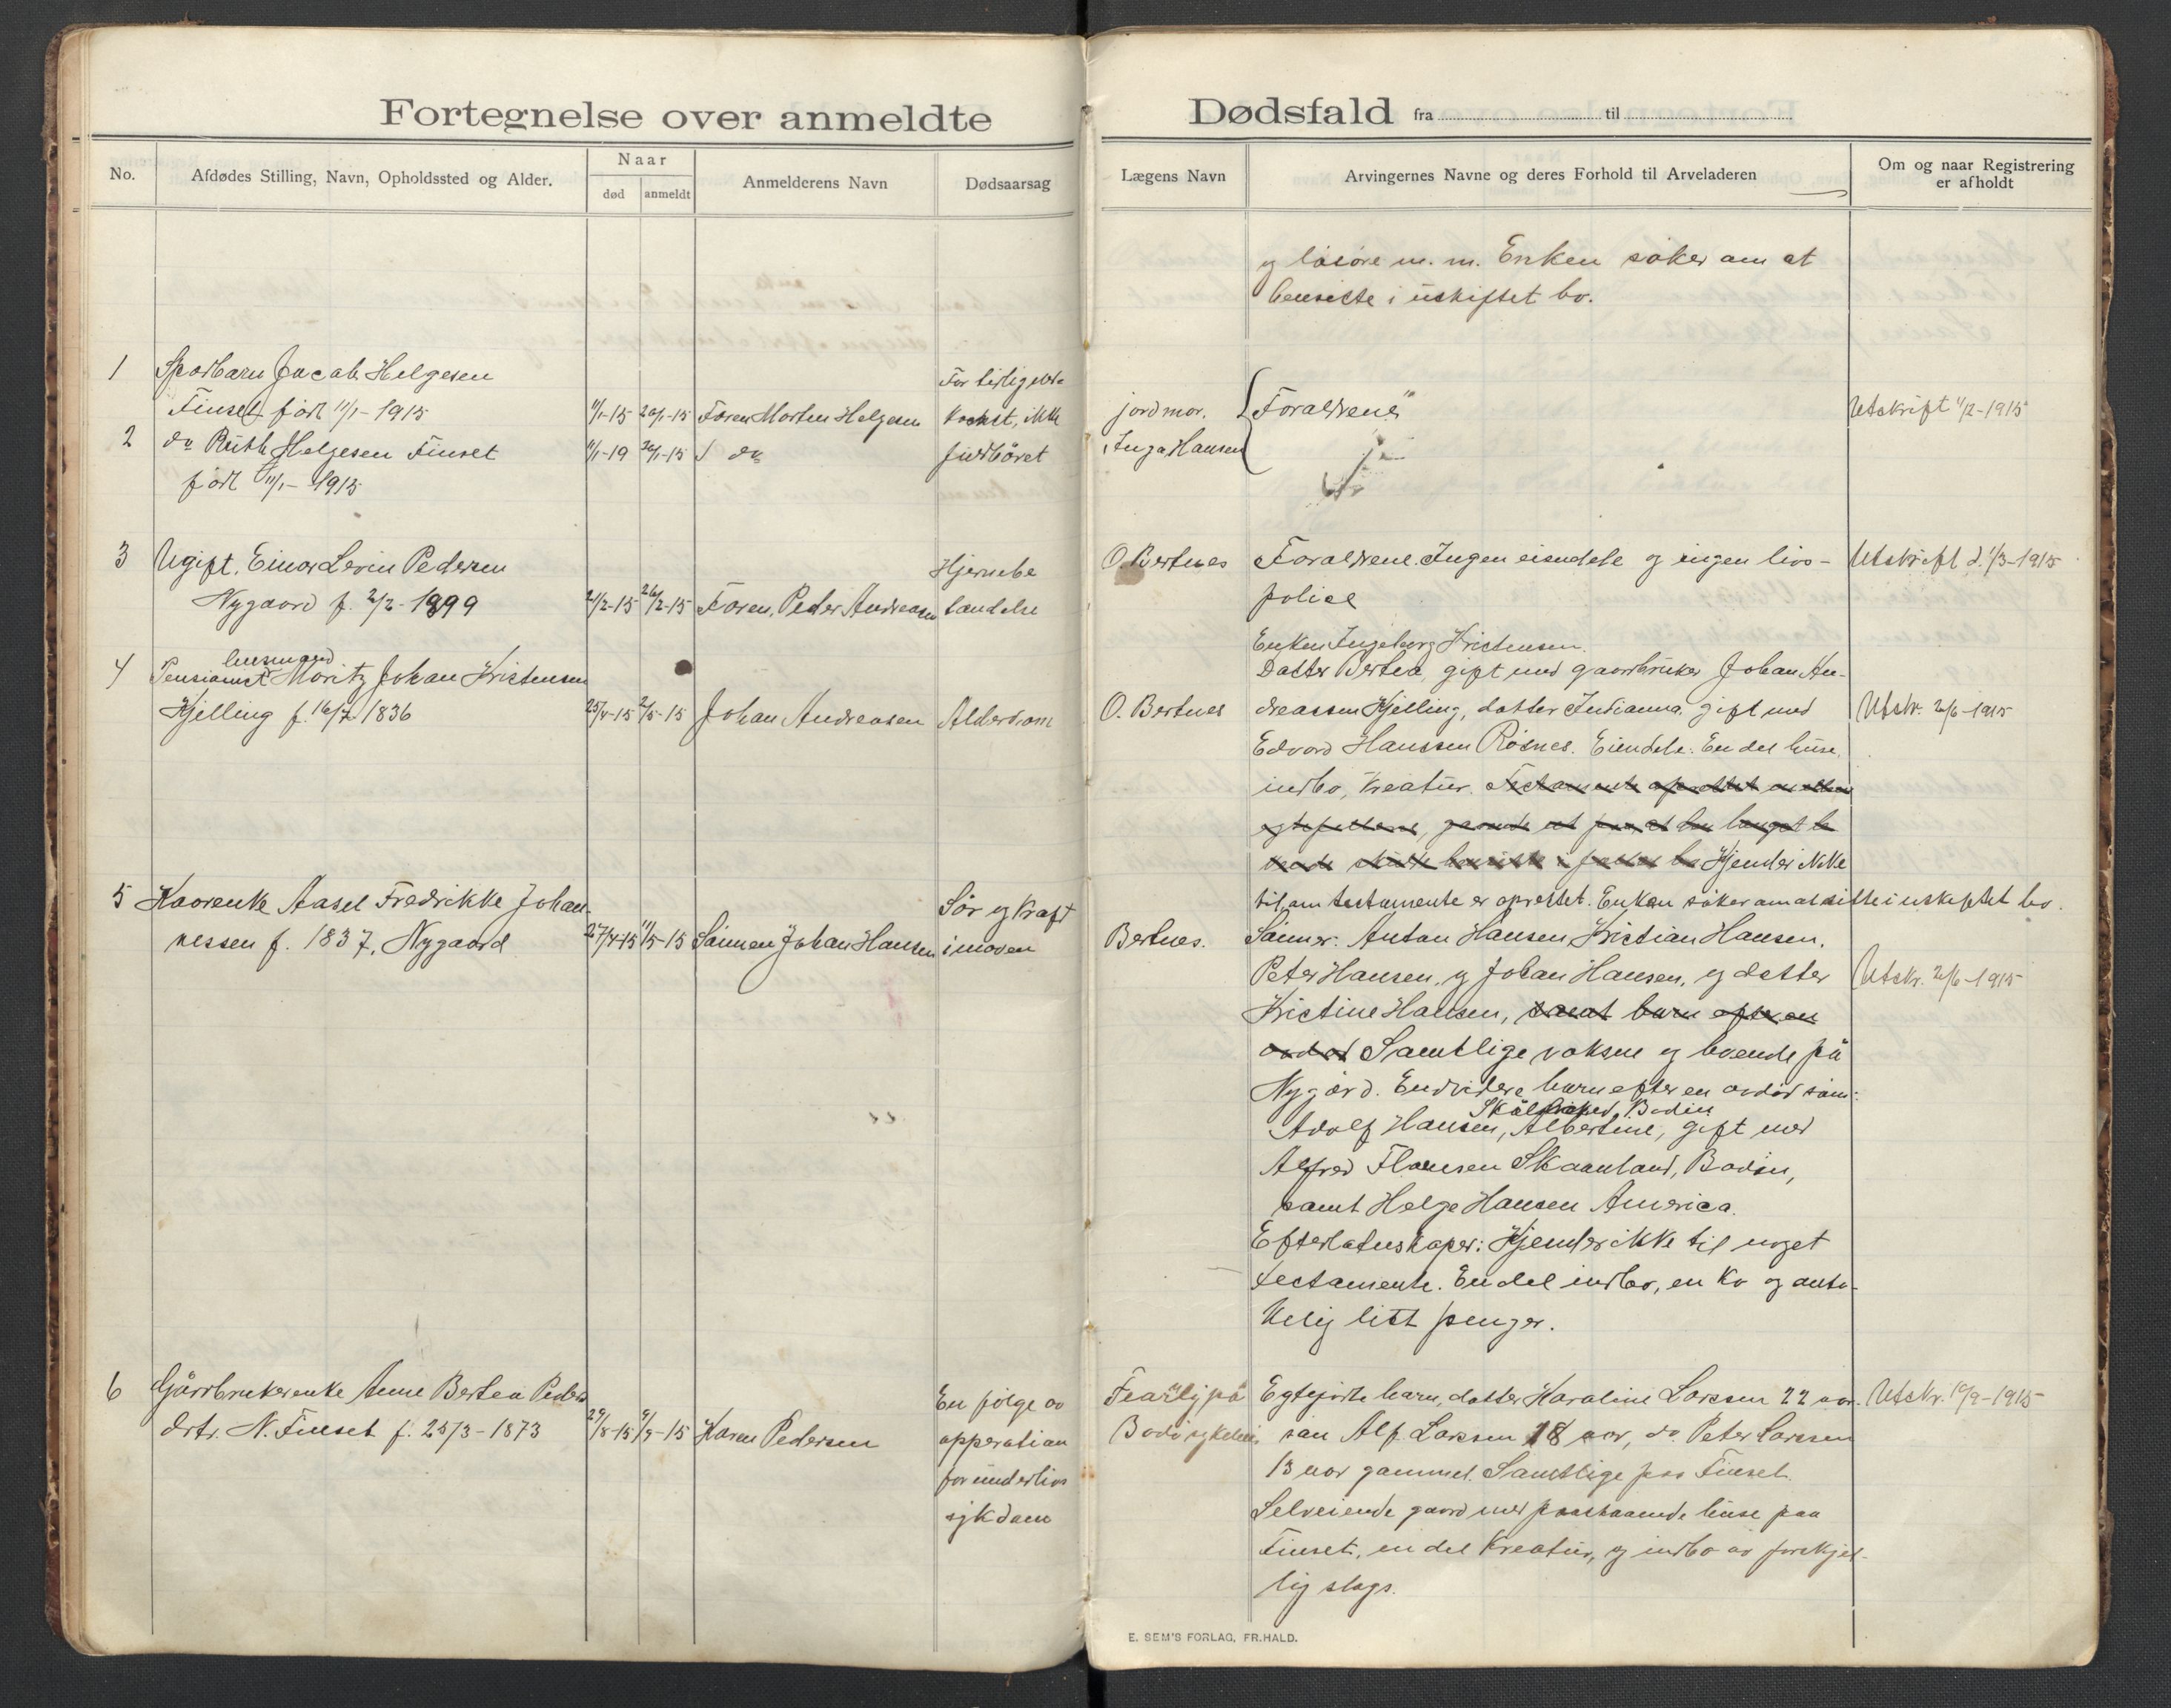 Fortegnelse over anmeldte Dødsfald fra til
No. Afdødes Stilling, Navn, Opholdssted og Alder. Naar død anmeldt Anmelderens Navn Dødsaarsag
Lægens Navn Arvingernes Navne og deres Forhold til Arveladeren Om og naar Registrering er afholdt
og løsøre m. m. Enken søker om at
bensitte i uskiftet bo.
1 Spædbarn Jacob Helgesen
Finset født 11/1-1915 11/1-15 20/1-15 Faren Morten Helgesen
For tidlig
født, ikke
fuldbåret
2 do Ruth Helgesen Finset 11/1-19 20/1-15 do
født 11/1-1915
jordmor.
Inga Hansen
Foraldrene
Utskrift 1/2-1915
3 Ugift. Einar Levin Pedersen
Nygaard f. 2/2-1899 21/2-15 26/2-15 Faren, Peder Andreasen
Hjernebe
tændelse
O. Bertnes Foraldrene. Ingen eiendele og ingen livs-
police
Utskrift d. 1/3-1915
4 Pensionist husmand Moritz Johan Kristensen
Kjelling f. 16/7 1836 25/4-15 2/5-15 Johan Andreasen Alderdom
O. Bertnes
Enken Ingeborg Kristensen.
Datter Bertea, gift med gaardbruker Johan An-
dreassen Kjelling, datter Indianna gift med
Edvard Hanssen Røsnes. Eiendele: En del huse,
indbo, kreatur. Testamente oprettet mellem
egtefellene, gaaende ut paa at den lengst le
vende skulle bensitte i felles bo Kjender ikke
til om testamente er oprettet. Enken søker om at sitte i uskiftet bo.
Utskr. 2/6-1915
5 Kaarenke Aasel Fredrikke Johan-
nessen f. 1837, Nygaard 27/4-15 11/5-15 Sønnen Johan Hansen
Sår og kraft
i maven
Bertnes. Sønner: Anton Hansen, Kristian Hansen,
Peter Hansen, og Johan Hansen, og datter
Kristine Hansen, samt barn efter en
avdød Samtlige voksne og boende på
Nygård. Endvidere barn efter en avdød søn:
Adolf Hansen, Bodin Albertine, gift med
Alfred Hansen Skaanland, Bodin,
samt Helge Hansen America.
Efterlatenskaper: Kjender ikke til noget
testamente. En del indbo, en ko og anta-
kelig litt penger.
Utskr. 2/6-1915
6 Gårdbrukerenke Anne Bertea Peders
drtr. N. Finset f. 25/3-1873 29/8-15 9/9-15 Karen Pedersen
En følge av
opperation
for underlivs
sykdom
på
Bodø sykehus
Egtefødte barn, datter Haraline Larssen 22 aar.
søn Alf. Larssen 18 aar, do. Peter Larssen
13 aar gammel. Samtlige paa Finset.
Selveiende gaard med paastaaende huse paa
Finset, en del kreatur, og indbo av forskjel-
lig slags.
Utskr. 10/9-1915
E. SEM'S FORLAG, FR.HALD.